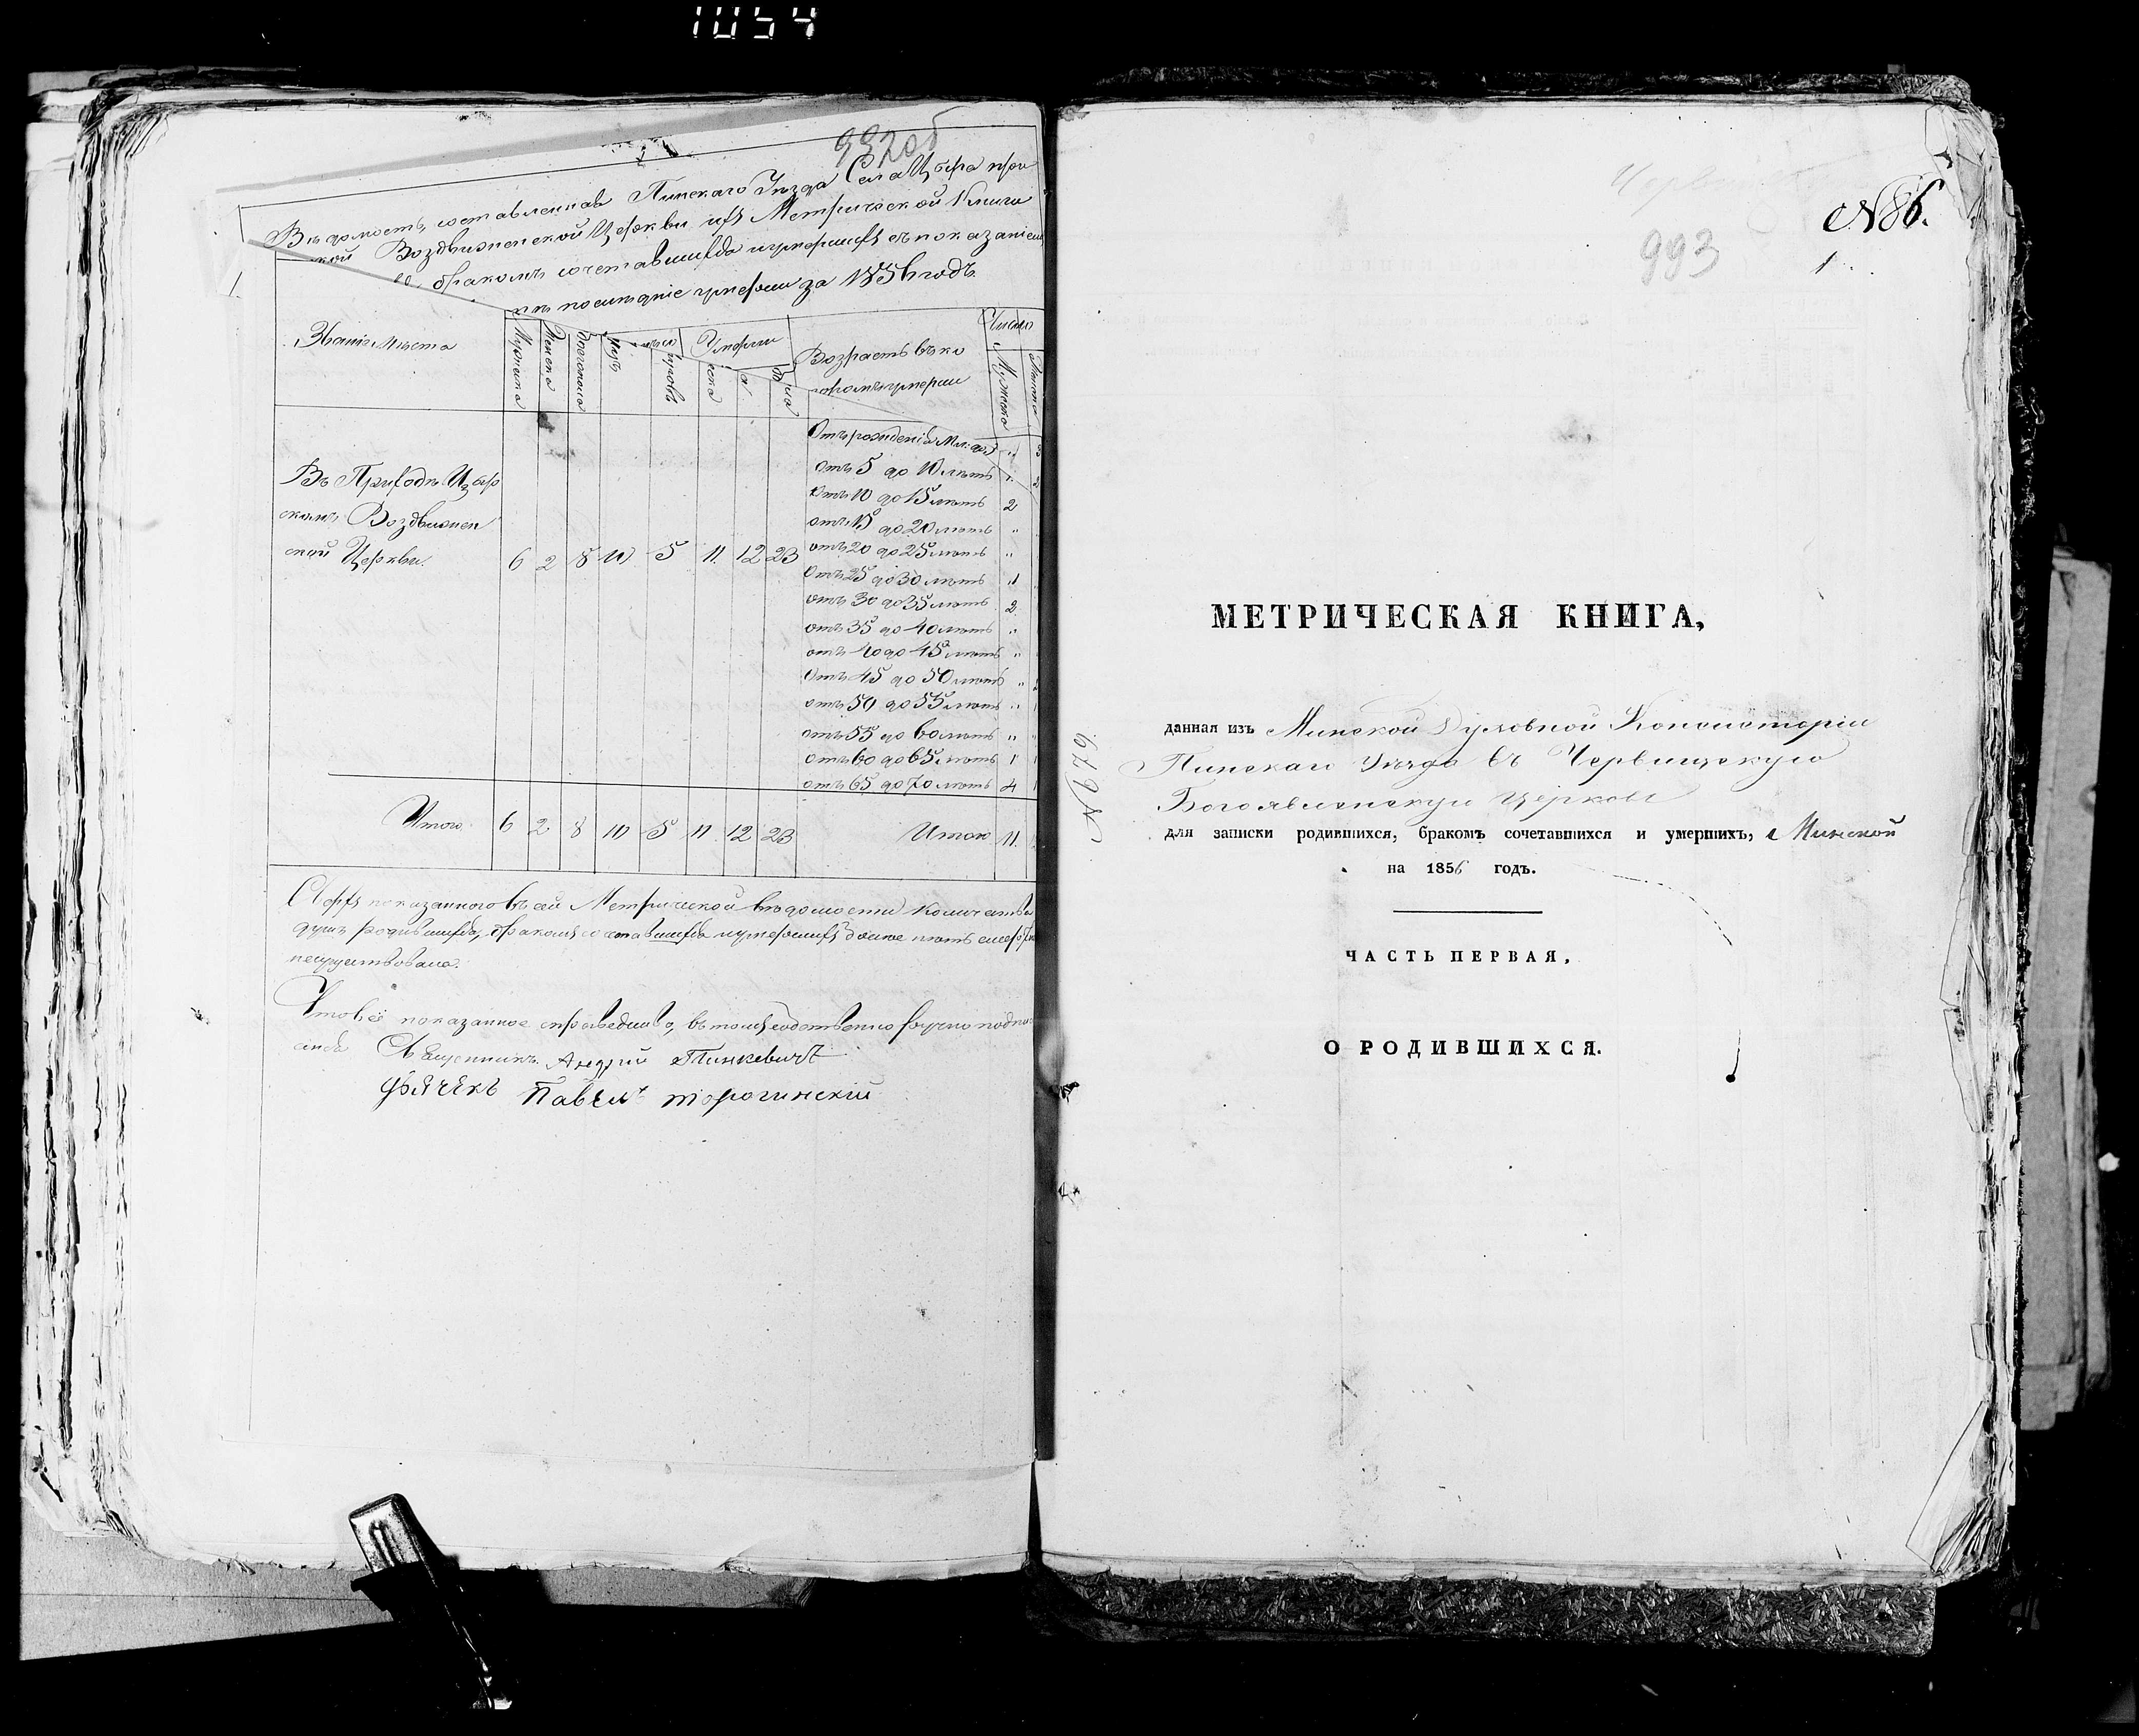 1054
992 об
Вѣдомость, составленная Пинскаго Уѣзда Села Избра при
кой Воздвиженской Церкви изъ Метрической Книги
бракомъ сочетавшихся и умершихъ съ показаніем
умерши за 1856 годъ
Званіе мѣста
Мужеска
Женска
Обоего пола
Умерли
Возрастъ въ ко
торомъ умерли
Число
Мужеска
Женска
Отъ рожденія до 5
отъ 5 до 10 лѣтъ
отъ 10 до 15 лѣтъ 2
отъ 15 до 20 лѣтъ "
отъ 20 до 25 лѣтъ "
отъ 25 до 30 лѣтъ 1
отъ 30 до 35 лѣтъ 2
отъ 35 до 40 лѣтъ "
отъ 40 до 45 лѣтъ "
отъ 45 до 50 лѣтъ "
отъ 50 до 55 лѣтъ "
отъ 55 до 60 лѣтъ "
отъ 60 до 65 лѣтъ 1
отъ 65 до 70 лѣтъ 4
Въ Приходѣ Избр
скомъ Воздвижен
ской Церкви. 6 2 8 10 5 11 12 23
Итого 6 2 8 10 5 11 12 23 Итого 11
Сверхъ показаннаго въ сей Метрической вѣдомости количества
душъ родившихся, бракомъ сочетавшихся и умершихъ болѣе
несуществовало.
Что всё показанное справедливо, въ томъ собственно ручно подпи
Священникъ Андрій Пинкевичъ
Дьячекъ Павелъ Торогинскій
№ 86.
993
1
МЕТРИЧЕСКАЯ КНИГА,
данная изъ Минской Духовной Консисторіи
Пинскаго Уѣзда въ Червищскую
Богоявленскую церковь
для записки родившихся, бракомъ сочетавшихся и умершихъ, Минской
на 1856 годъ.
ЧАСТЬ ПЕРВАЯ,
О РОДИВШИХСЯ.
№ 679